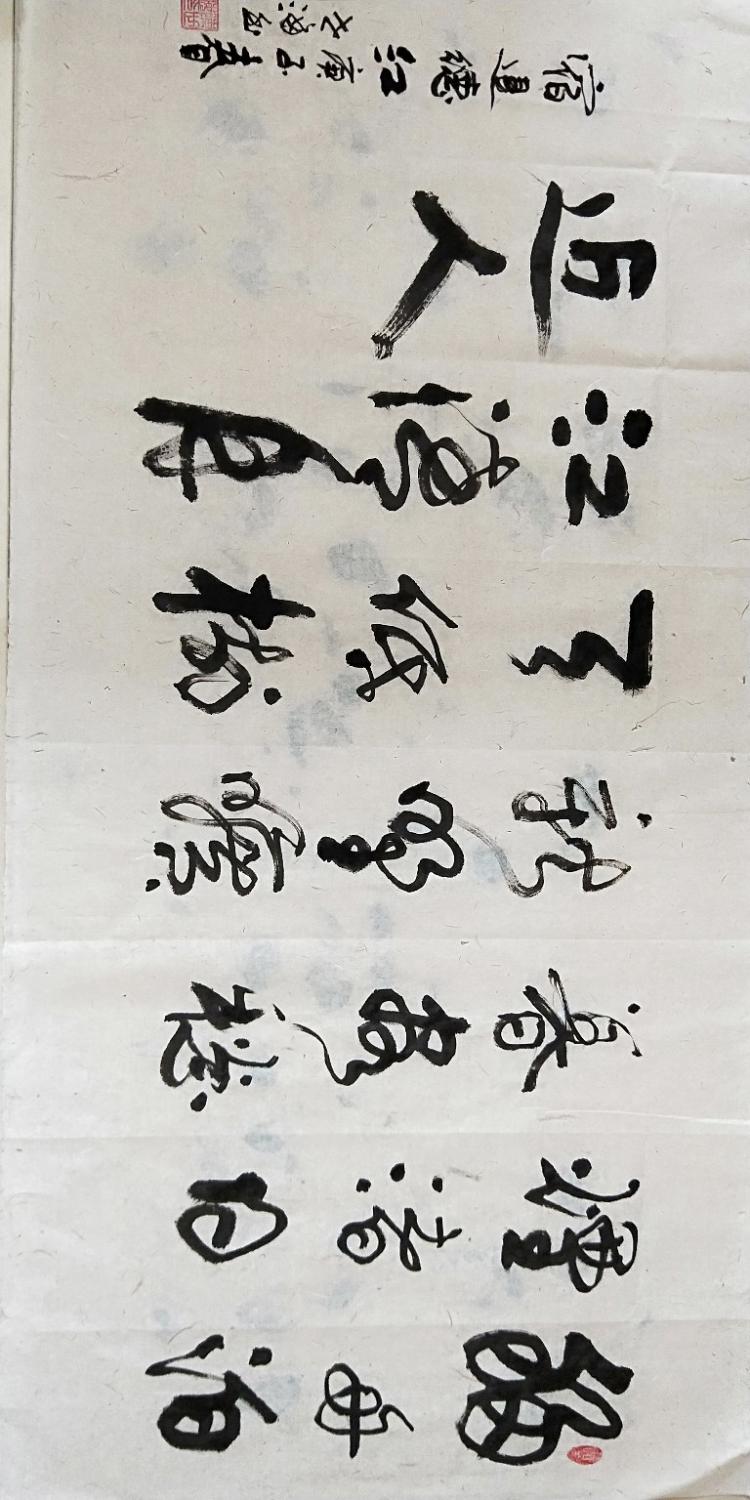 移舟泊
煙渚日
暮客愁
新野曠
天低樹
江清月
近人
宿建德江 庚子春